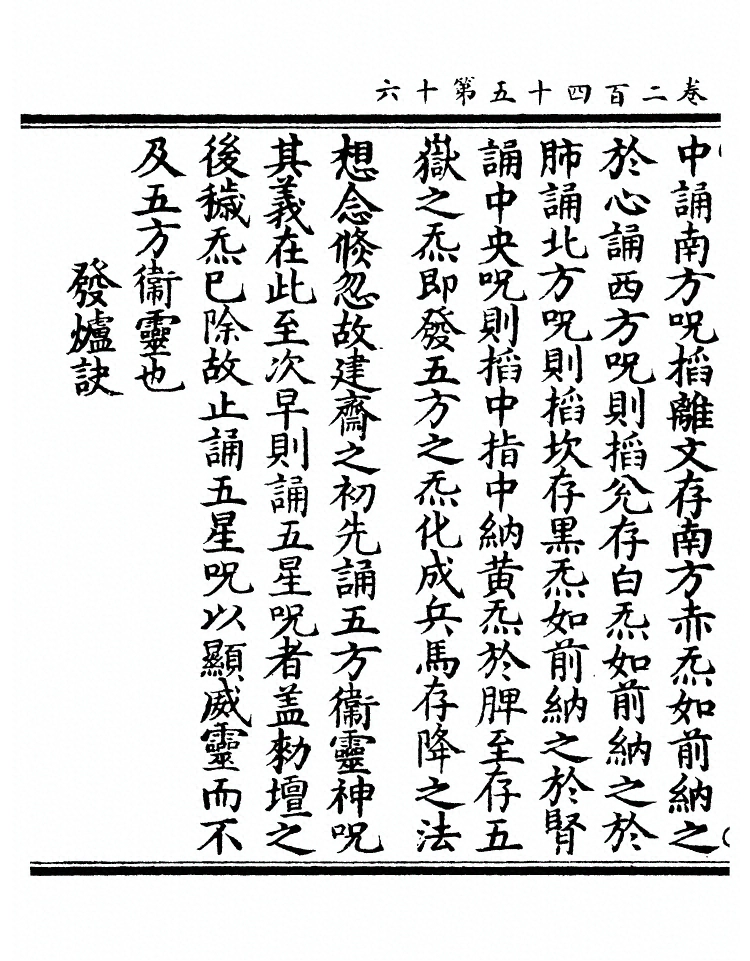 卷二百四十五第十六
中誦南方呪搯離文存南方赤炁如前納之
於心誦西方呪則搯兊存白炁如前納之於
肺誦北方呪則搯坎存黑炁如前納之於腎
誦中央呪則搯中指中納黄炁於脾至存五
嶽之炁即發五方之炁化成兵馬存降之法
想念倐忽故建齋之初先誦五方衛靈神呪
其義在此至次早則誦五星呪者盖勑壇之
後穢炁已除故止誦五星呪以顯威靈而不
及五方衛靈也
發爐訣